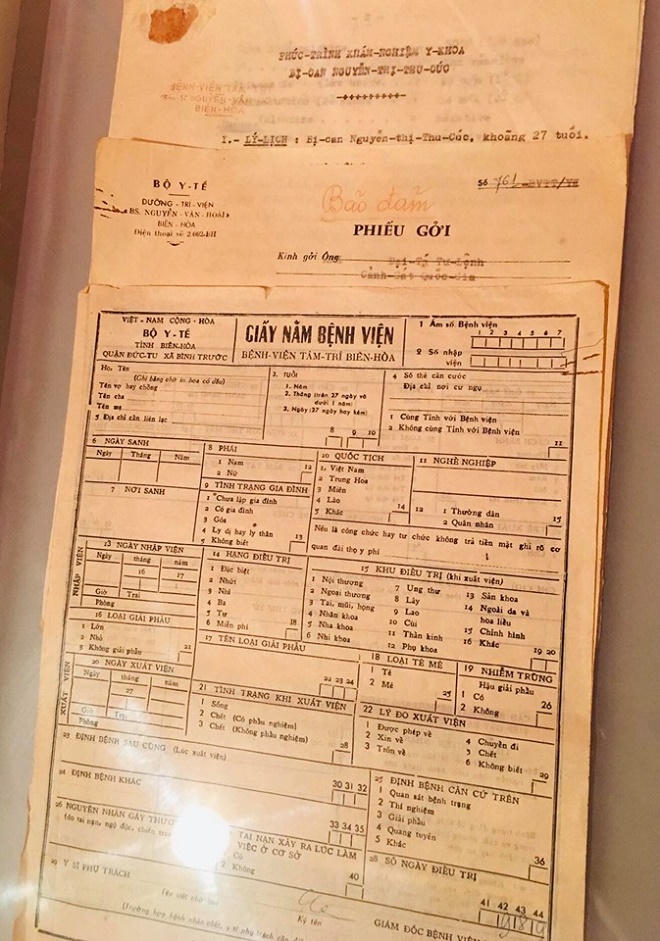 PHÚC-TRÌNH KHÁM-NGHIỆM Y-KHOA
BỊ-CAN NGUYỄN-THỊ-THU-CÚC
BỆNH-VIỆN TÂM-TRÍ
NGUYỄN-VĂN-
BIÊN-HÒA
I.- LÝ-LỊCH : Bị-can Nguyễn-thị-Thu-Cúc, khoãng 27 tuổi.
BỘ Y-TẾ
DƯỠNG-TRÍ-VIỆN
BS. NGUYỄN-VĂN-HOÀI
BIÊN-HÒA
Điện thoại số 2 002-BH
Số 761-BVTT/YV
Bảo đảm
PHIẾU GỞI
Kính gởi Ông Đại-Tá Tư-Lệnh
Cảnh-Sát Quốc-Gia
VIỆT-NAM CỘNG-HÒA
BỘ Y-TẾ
TỈNH BIÊN-HÒA
QUẬN ĐỨC-TU XÃ BÌNH TRƯỚC
GIẤY NẰM BỆNH VIỆN
BỆNH-VIỆN TÂM-TRÍ BIÊN-HÒA
1 Ám số Bệnh viện
1 2 3 4 5 6 7
2 Số nhập viện
Họ, Tên
(Ghi bằng chữ in hoa có dấu)
Tên vợ hay chồng
Tên cha
Tên mẹ
5 Địa chỉ cần liên lạc
3. TUỔI
1. Năm
2. Tháng (trên 27 ngày và dưới 1 năm)
3. Ngày (27 ngày hay kém)
8 9 10
4 Số thẻ căn cước
Địa chỉ nơi cư ngụ
1 Cùng Tỉnh với Bệnh viện
2 Không cùng Tỉnh với Bệnh viện
11
6 NGÀY SANH
Ngày Tháng Năm
7 NƠI SANH
8 PHÁI
1 Nam
2 Nữ
12
9 TÌNH TRẠNG GIA ĐÌNH
1 Chưa lập gia đình
2 Có gia đình
3 Góa
4 Ly dị hay ly thân
5 Không biết
13
10 QUỐC TỊCH
1. Việt Nam
2 Trung Hoa
3 Miên
4 Lào
5 Khác
14
11 NGHỀ NGHIỆP
12
1 Thường dân
2 Quân nhân
15
Nếu là công chức hay tư chức không trả tiền mặt ghi rõ cơ quan đài thọ y phí
NHẬP VIỆN
13 NGÀY NHẬP VIỆN
Ngày tháng năm
16 17
Giờ Trại
Phòng
14 HẠNG ĐIỀU TRỊ
1 Đặc biệt
2 Nhứt
3 Nhì
4 Ba
5 Tư
6 Miễn phí
18
15 KHU ĐIỀU TRỊ (khi xuất viện)
1 Nội thương
2 Ngoại thương
3 Tai, mũi, họng
4 Nhãn khoa
5 Nha khoa
6 Nhi khoa
7 Ung thư
8 Lây
9 Lao
10 Cùi
11 Thần kinh
12 Phụ khoa
13 Sản khoa
14 Ngoài da và hoa liễu
15 Chỉnh hình
16 Khác
19 20
16 LOẠI GIẢI PHẪU
1 Lớn
2 Nhỏ
3 Không giải phẫu
21
17 TÊN LOẠI GIẢI PHẪU
22 23 24
18 LOẠI TÊ MÊ
1 Tê
2 Mê
25
19 NHIỄM TRÙNG
Hậu giải phẫu
1 Có
2 Không
26
XUẤT VIỆN
20 NGÀY XUẤT VIỆN
Ngày tháng năm
27
Giờ Trại
Phòng
21 TÌNH TRẠNG KHI XUẤT VIỆN
1 Sống
2 Chết (Có phẫu nghiệm)
3 Chết (Không phẫu nghiệm)
28
22 LÝ DO XUẤT VIỆN
1 Được phép về
2 Xin về
3 Trốn về
4 Chuyển đi
5 Chết
6 Không biết
29
23 ĐỊNH BỆNH SAU CÙNG (Lúc xuất viện)
24 ĐỊNH BỆNH KHÁC
30 31 32
25 ĐỊNH BỆNH CĂN CỨ TRÊN
1 Quan sát bệnh trạng
2 Thí nghiệm
3 Giải phẫu
4 Quang tuyến
5 Khác
36
26 NGUYÊN NHÂN GÂY THƯƠ
(do tai nạn, ngộ độc, chiến tr
33 34 35
TAI NẠN XẢY RA LÚC LÀM VIỆC Ở CƠ SỞ
1 Có
2 Không
40
28 SỐ NGÀY ĐIỀU TRỊ
41 42 43 44
29 Y SĨ PHỤ TRÁCH
Ký tên
GIÁM ĐỐC BỆNH VIỆN